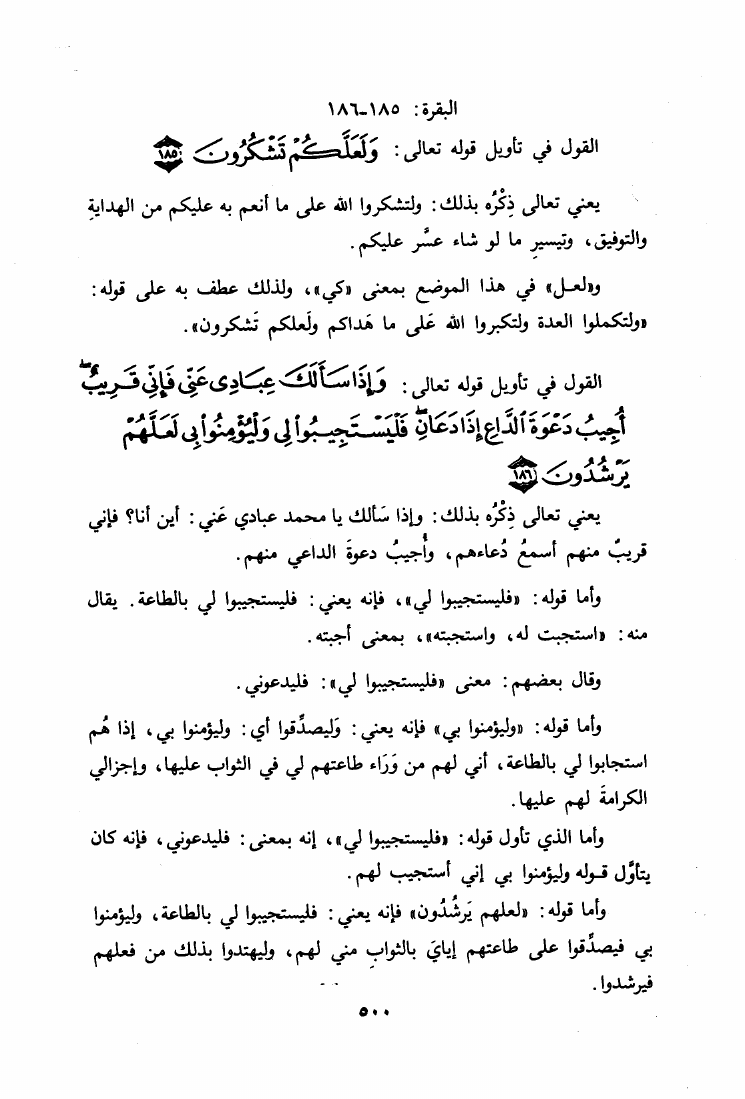 البقرة: ١٨٥-١٨٦
القول في تأويل قوله تعالى: وَلَعَلَّكُمْ تَشْكُرُونَ ١٨٥
يعني تعالى ذِكْرُه بذلك: ولتشكروا الله على ما أنعم به عليكم من الهدايةِ
والتوفيق، وتيسيرِ ما لو شاء عسَّر عليكم.
و«لعل» في هذا الموضع بمعنى «كي»، ولذلك عطف به على قوله:
«ولتكملوا العدة ولتكبروا الله عَلى ما هَداكم ولَعلكم تَشكرون».
القول في تأويل قوله تعالى: وَإِذَا سَأَلَكَ عِبَادِى عَنِّى فَإِنِّى قَرِيبٌ ۖ
أُجِيبُ دَعْوَةَ ٱلدَّاعِ إِذَا دَعَانِ ۖ فَلْيَسْتَجِيبُوا۟ لِى وَلْيُؤْمِنُوا۟ بِى لَعَلَّهُمْ
يَرْشُدُونَ ١٨٦
يعني تعالى ذِكْرُه بذلك: وإذا سَألك يا محمد عبادي عَني: أين أنا؟ فإني
قريبٌ منهم أسمعُ دُعاءهم، وأُجيبُ دعوةَ الداعي منهم.
وأما قوله: «فليستجيبوا لي»، فإنه يعني: فليستجيبوا لي بالطاعة. يقال
منه: «استجبت له، واستجبته»، بمعنى أجبته.
وقال بعضهم: معنى «فليستجيبوا لي»: فليدعوني.
وأما قوله: «وليؤمنوا بي» فإنه يعني: وَليصدِّقوا أي: وليؤمنوا بي، إذا هُم
استجابوا لي بالطاعة، أني لهم من وَرَاء طاعتهم لي في الثواب عليها، وإجزالي
الكرامةَ لهم عليها.
وأما الذي تأول قوله: «فليستجيبوا لي»، إنه بمعنى: فليدعوني، فإنه كان
يتأوَّل قوله وليؤمنوا بي إني أستجيب لهم.
وأما قوله: «لعلهم يَرشُدُون» فإنه يعني: فليستجيبوا لي بالطاعة، وليؤمنوا
بي فيصدِّقوا على طاعتهم إيايَ بالثوابِ مني لهم، وليهتدوا بذلك من فعلهم
فيرشدوا.
٥٠٠